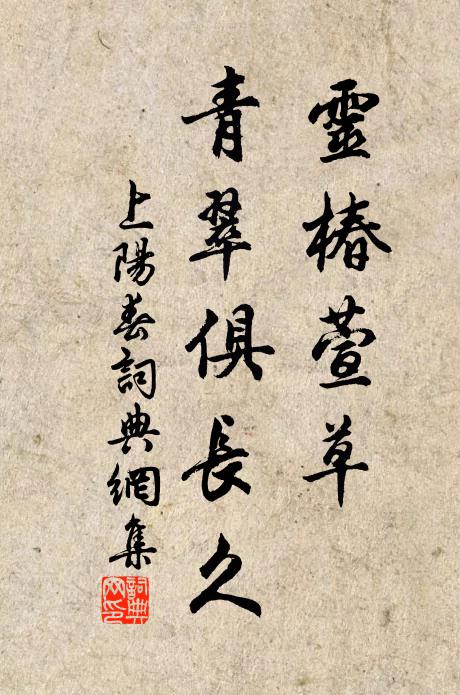 靈椿萱草
青翠俱長久
上陽春詞典網集
詞典